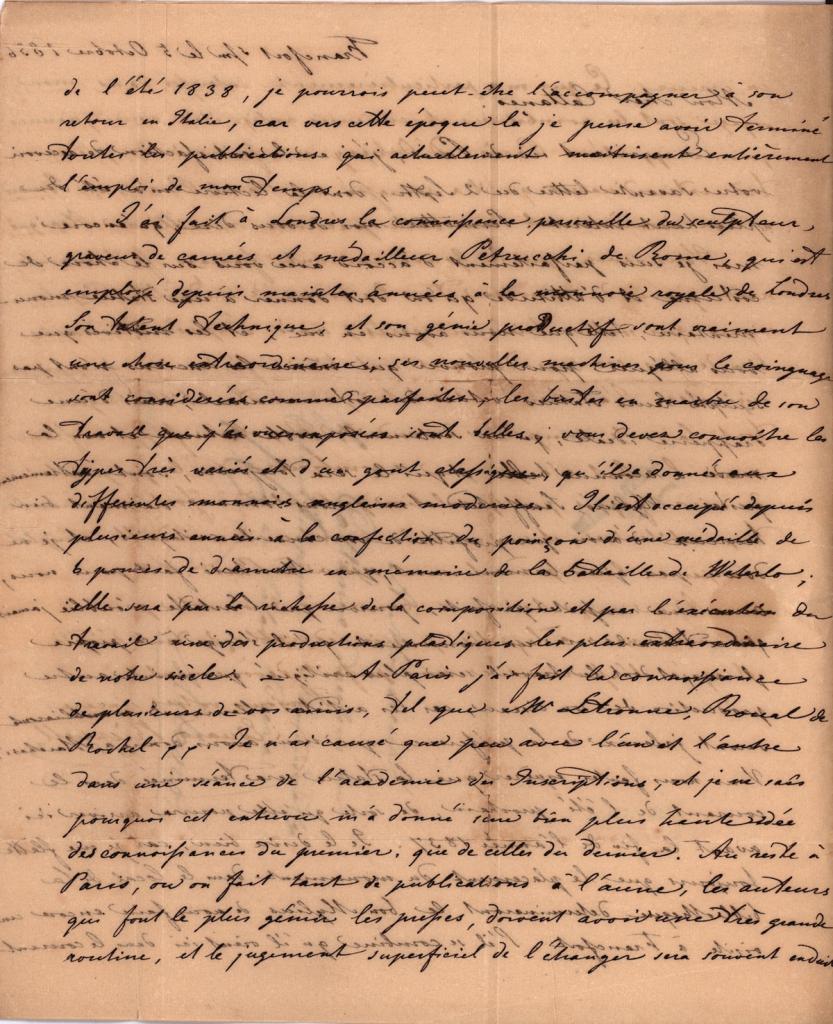 de l'été 1838, je pourrois peut-être l'accompagner à son
retour en Italie, car vers cette époque là je pense avoir terminé
toutes les publications qui actuellement maitrisent entièrement
l'emploi de mon temps.
J'ai fait à Londres la connoissance personelle du sculpteur,
graveur de camées et médailleur Petrucchi de Rome, qui est
employé depuis maintes années à la monnoie royale de Londres
Son talent technique et son génie productif sont vraiment
une chose extraordinaire; ses nouvelles machines pour le coingnage
sont considerées comme parfaites; les bustes en marbre de son
travail que j'ai vues exposées sont belles; vous devez connoître les
types très variés et d'un gout classique, qu'il a donné aux
differentes monnois anglaises modernes. Il est occupé depuis
plusieurs années à la confection du poinçon d'une médaille de
6 pouces de diametre en mémoire de la bataille de Waterlo;
elle sera par la richesse de la composition et par l'exécution du
travail une des productions plastiques les plus extraordinaire
de notre siècle. — A Paris j'ai fait la connoissance
de plusieurs de vos amis, tel que Mr Letronne, Roual de
Rochel. Je n'ai causé que peu avec l'un et l'autre
dans une séance de l'academie des Inscriptions, et je ne sais
pourquoi cet entrevue m'a donné une bien plus haute idée
des connoissances du premier, que de celles du dernier. Au reste à
Paris, ou on fait tant de publications à l'aune, les auteurs
qui font le plus gémir les presses, doivent avoir une très grande
routine, et le jugement superficiel de l'étranger sera souvent enduit